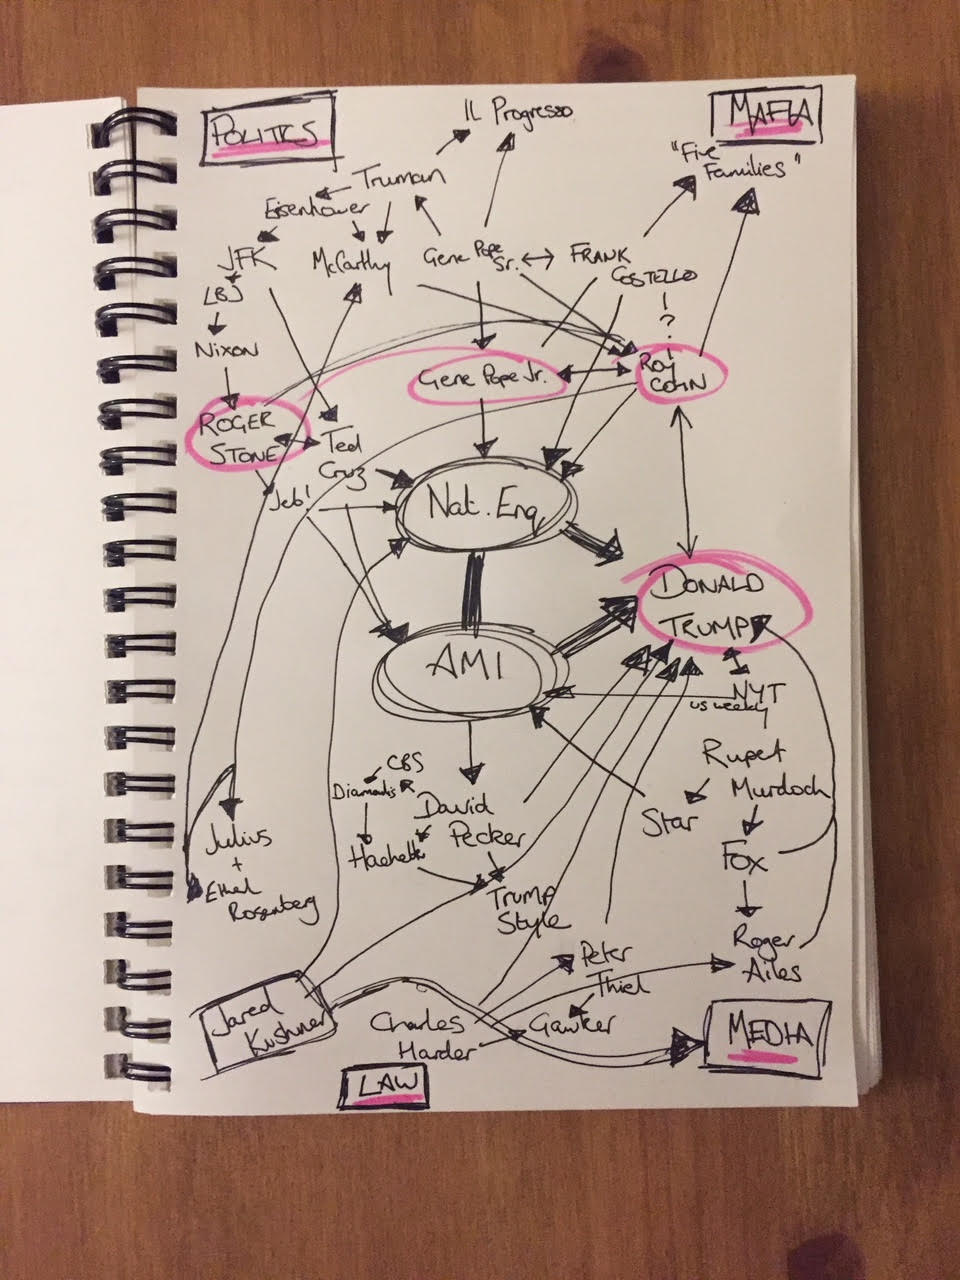 POLITICS
IL Progresso
MAFIA
"Five
Families"
Truman
Eisenhower
JFK
McCarthy
Gene Pope
Sr.
FRANK
COSTELLO
LBJ
?
Nixon
Gene Pope Jr.
ROY
COHN
ROGER
STONE
Ted
Cruz
Jeb!
Nat. Enq.
DONALD
TRUMP
AMI
NYT
US weekly
CBS
Diamandis
David
Pecker
Rupert
Murdoch
Star
Hachette
Fox
Julius
+
Ethel
Rosenberg
TRUMP
Style
Roger
Ailes
Peter
Thiel
Jared
Kushner
Charles
Harder
Gawker
MEDIA
LAW